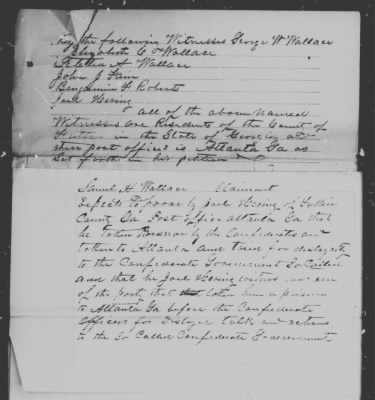 by the following Witnesses George W Wallace
Elizabeth C Wallace
A Wallace
John J Fain
Benjamin F Roberts
Joel Herring
all of the above named
Witnesses are Residents of the County of
Fulton in the State of Georgia and
their post office is Atlanta Ga as
Set forth in his petition
Saml H Wallace Claimant
Expects to prove by Joel Herring of Fulton
County Ga Post office Atlanta Ga that
he taken Prisoner by the Confederates and
taken to Atlanta and tried for disloyalty
to the Confederate Government So Called
and that he Joel Herring witness was one
of the party that taken him a prisoner
to Atlanta Ga before the Confederate
officers for Disloyal talk and actions
to the So Called Confederate Government